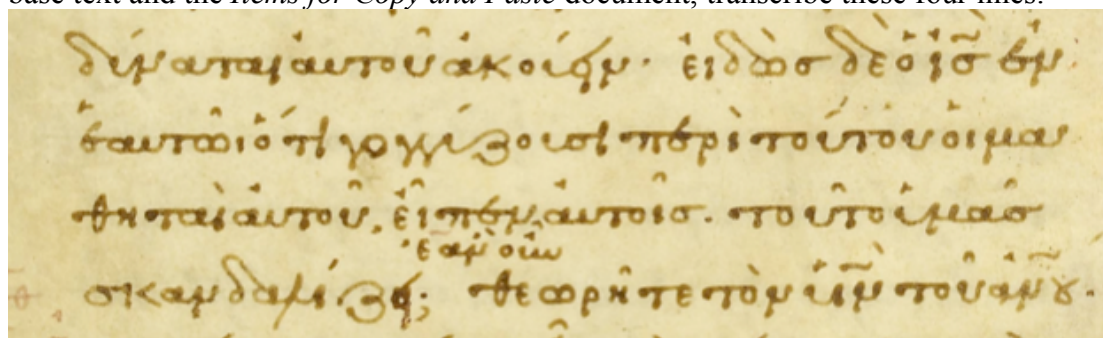 base text and the Items for Copy and Paste document, transcribe these four lines.
δύναται αὐτοῦ ἀκούειν· εἰδὼς δὲ ὁ ι̅ς̅ ἐν
ἑαυτῶι ὅτι γογγύζουσι περὶ τούτου οἱ μα
θηταὶ αὐτοῦ, εἶπεν αὐτοῖς. τοῦτο ὑμᾶς
ἐὰν οὖν
σκανδαλίζει; θεωρῆτε τὸν υ̅ν̅ τοῦ α̅ν̅ο̅υ̅.